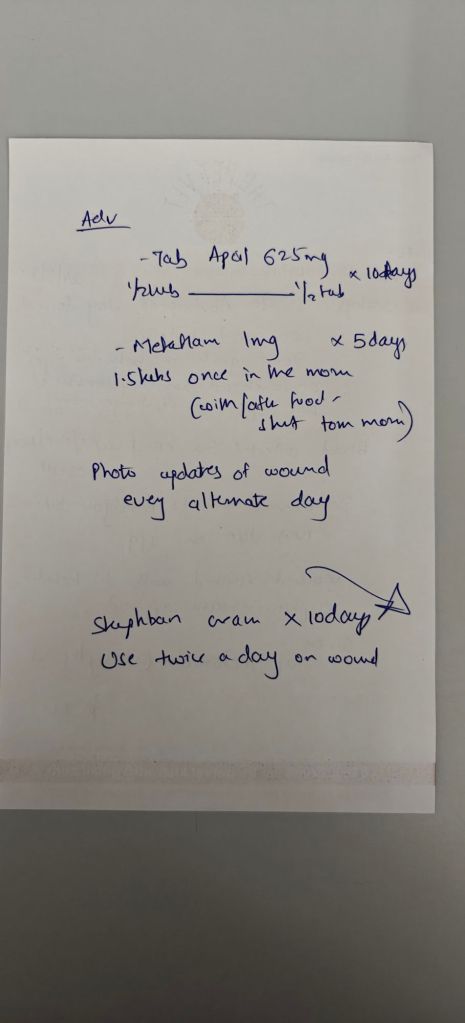 Adv
- Tab Apcal 625mg x 10days
1/2 tab ———— 1/2 tab
- Metaflam 1mg x 5days
1.5 tabs once in the morn
(with/after food -
start tom morn)
Photo updates of wound
every alternate day
Staphban cream x 10days
Use twice a day on wound